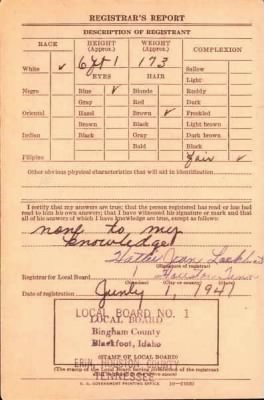 REGISTRAR'S REPORT
DESCRIPTION OF REGISTRANT
RACE
HEIGHT (Approx.)
WEIGHT (Approx.)
COMPLEXION
White ✓ 6 ft 1 173 Sallow
EYES HAIR Light
Negro Blue ✓ Blonde Ruddy
Gray Red Dark
Oriental Hazel Brown ✓ Freckled
Brown Black Light brown
Indian Black Gray Dark brown
Bald Black
Filipino fair ✓
Other obvious physical characteristics that will aid in identification
I certify that my answers are true; that the person registered has read or has had
read to him his own answers; that I have witnessed his signature or mark and that
all of his answers of which I have knowledge are true, except as follows:
none to my
knowledge
Hattie Jean Lockhart
(Signature of registrar)
Registrar for Local Board 1 Houston Tenn
Date of registration July 1, 1941
LOCAL BOARD NO. 1
LOCAL BOARD
Bingham County
Blackfoot, Idaho
(STAMP OF LOCAL BOARD)
ERIN, HOUSTON COUNTY
(The stamp of the Local Board having jurisdiction of the registrant
TENNESSEE
U. S. GOVERNMENT PRINTING OFFICE